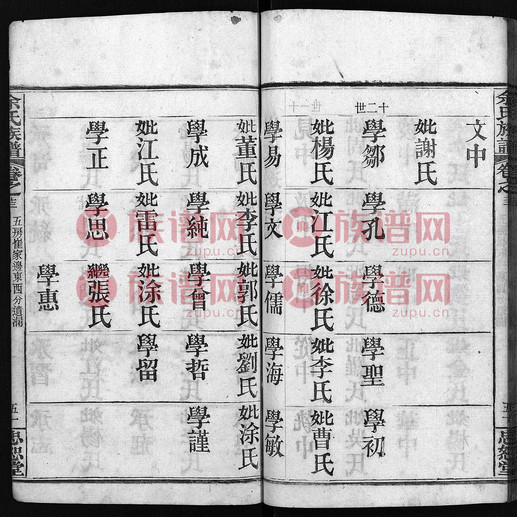 余氏族譜
卷之
思恕堂
文中
妣謝氏
十二世
學鄒
學孔
學德
學聖
學初
妣楊氏
妣江氏
妣徐氏
妣李氏
妣曹氏
學易
學文
學儒
學海
學敏
妣董氏
妣李氏
妣郭氏
妣劉氏
妣涂氏
學成
學純
學曾
學哲
學謹
妣江氏
妣雷氏
妣涂氏
學留
學正
學思
繼張氏
學惠
余氏族譜
卷之
五房崔家邊東西分
五
思恕堂
族谱网
zupu.cn
族谱网
zupu.cn
族谱网
zupu.cn
族谱网
zupu.cn